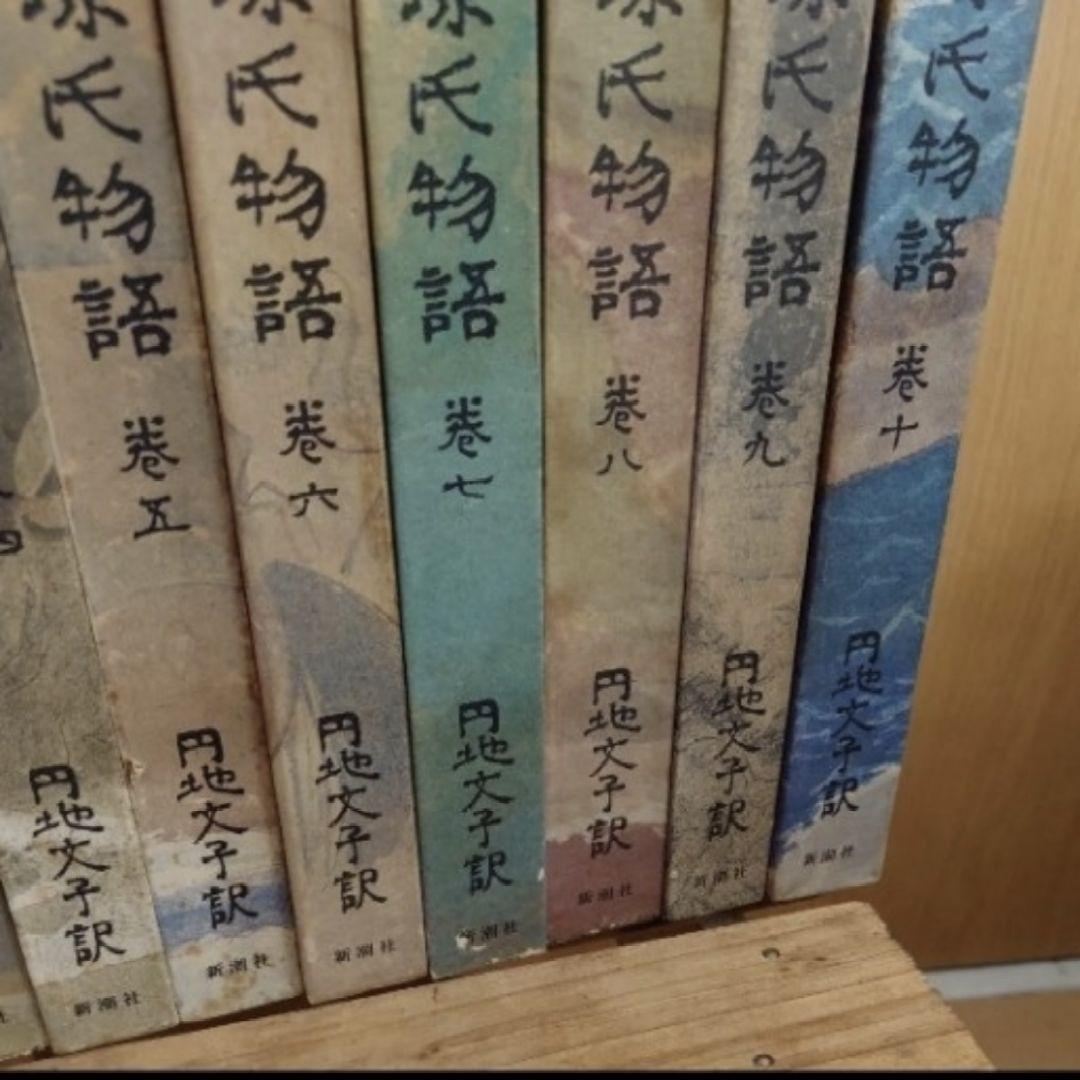 四
円地文子訳
新潮社
源氏物語
巻五
円地文子訳
新潮社
源氏物語
巻六
円地文子訳
新潮社
源氏物語
巻七
円地文子訳
新潮社
源氏物語
巻八
円地文子訳
新潮社
源氏物語
巻九
円地文子訳
新潮社
氏物語
巻十
円地文子訳
新潮社